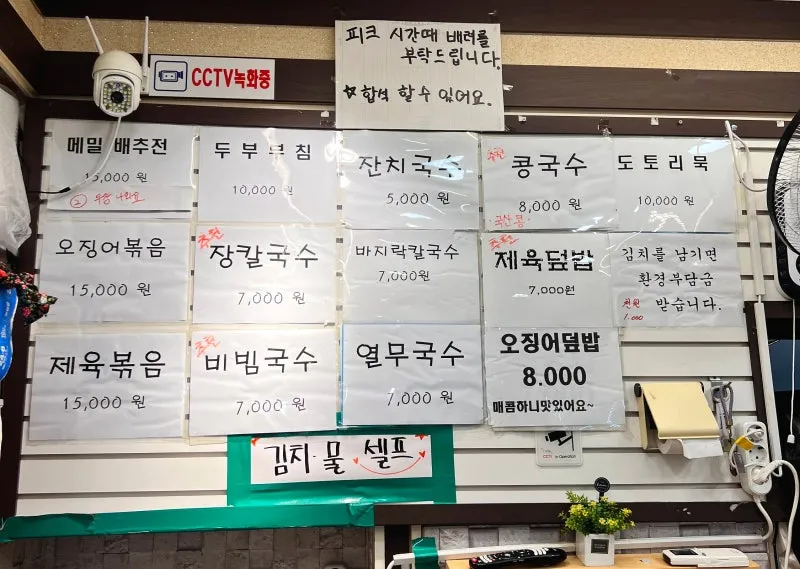 피크 시간때 배려를
부탁드립니다.
☆합석 할수 있어요.
CCTV녹화중
메밀 배추전
15,000 원
두부부침
10,000 원
잔치국수
5,000 원
추천
콩국수
8,000 원
국산콩
도토리묵
10,000 원
오징어볶음
15,000 원
추천
장칼국수
7,000 원
바지락칼국수
7,000원
추천
제육덮밥
7,000원
김치를 남기면
환경부담금
천원 받습니다.
1.000
제육볶음
15,000 원
추천
비빔국수
7,000 원
열무국수
7,000 원
오징어덮밥
8.000
매콤하니맛있어요~
김치·물 셀프
CCTV In Operation